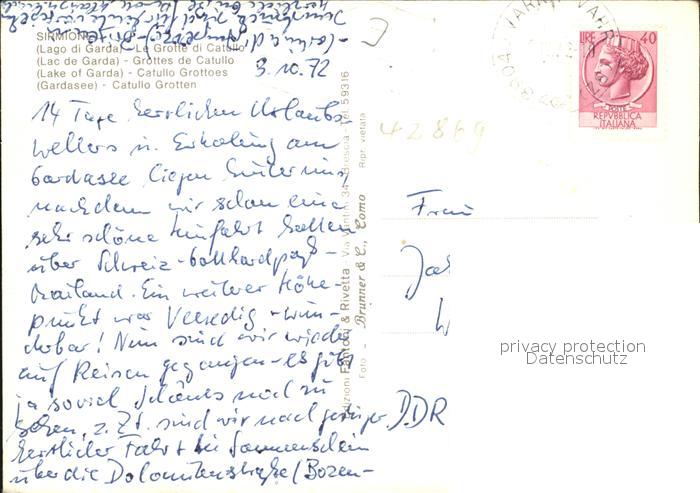 SIRMIONE
(Lago di Garda) - Le Grotte di Catullo
(Lac de Garda) - Grottes de Catullo
(Lake of Garda) - Catullo Grottoes
(Gardasee) - Catullo Grotten
3.10.72
14 Tage herrlichen Urlaubs
wetters u. Erholung am
Gardasee liegen hinter uns,
nachdem wir schon eine
sehr schöne Hinfahrt hatten
über Schweiz - Gotthardpaß -
Mailand. Ein weiterer Höhe-
punkt war Venedig - wun-
derbar! Nun sind wir wieder
auf Reisen gegangen - es gibt
ja soviel Schönes noch zu
sehen, z. Zt. sind wir nach gestriger
herrlicher Fahrt bei Sonnenschein
über die Dolomitenstraße (Bozen-
Edizioni Fantoni & Rivetta - Via Vantini 34 - Brescia - Tel. 59316
Foto - Brunner & C., Como Ripr. vietata
LIRE 40
POSTE
REPVBBLICA
ITALIANA
42869
Frau
DDR
privacy protection
Datenschutz